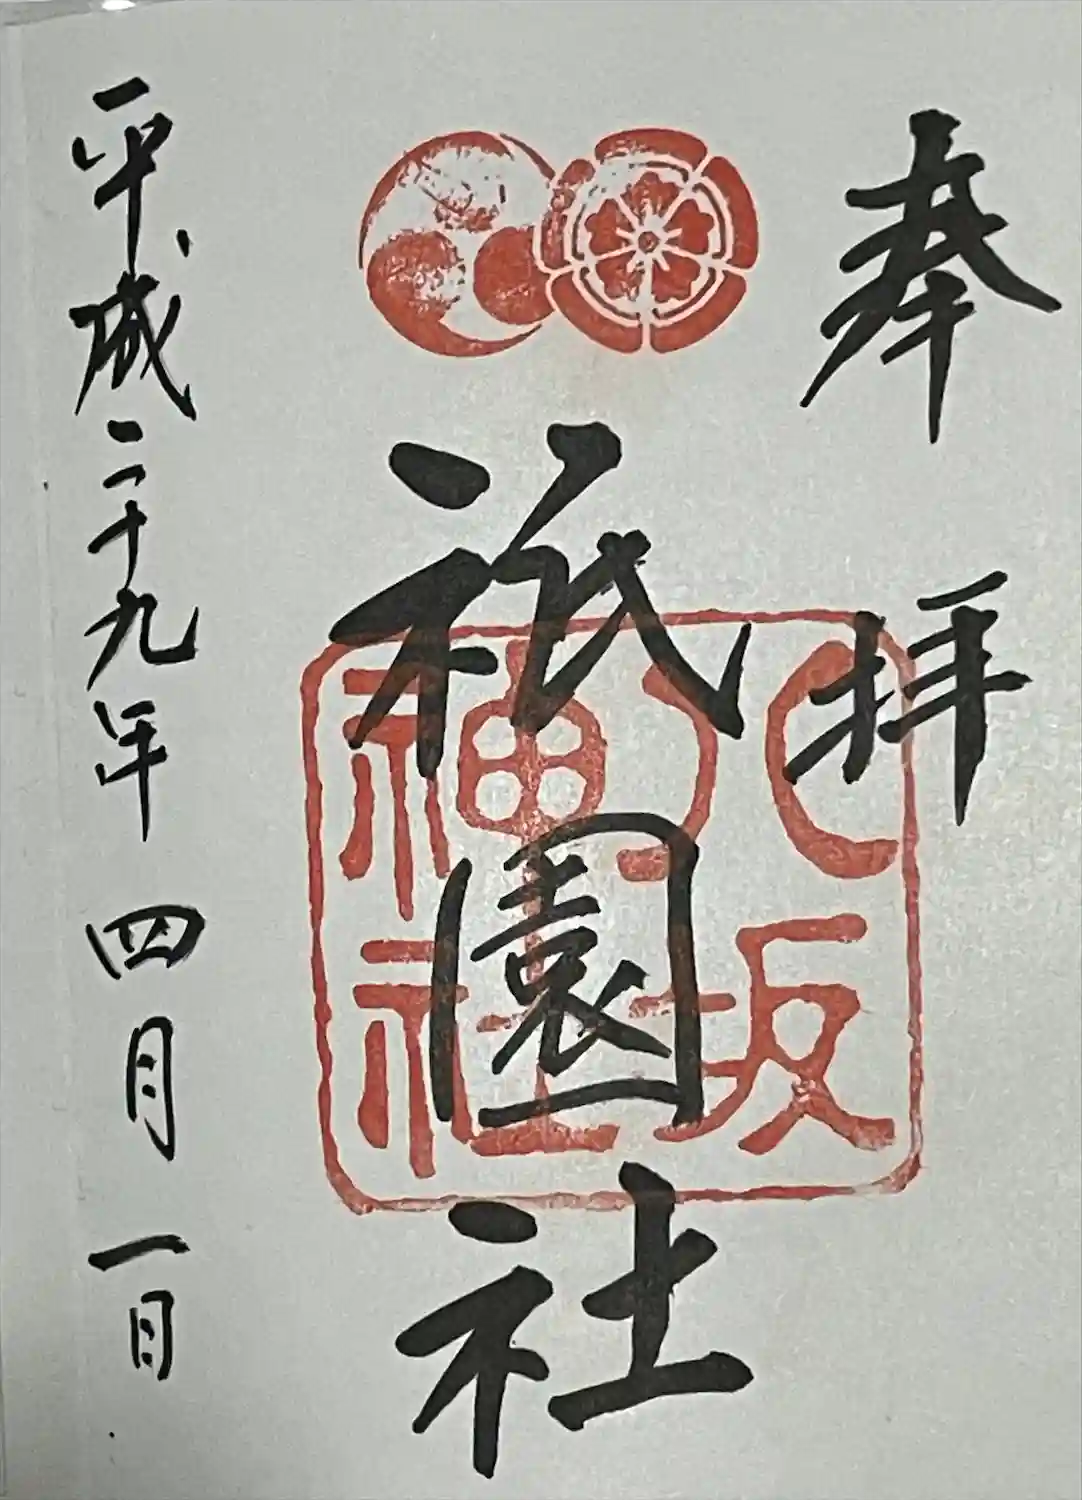 奉拝
祇園社
八坂神社
平成二十九年四月一日